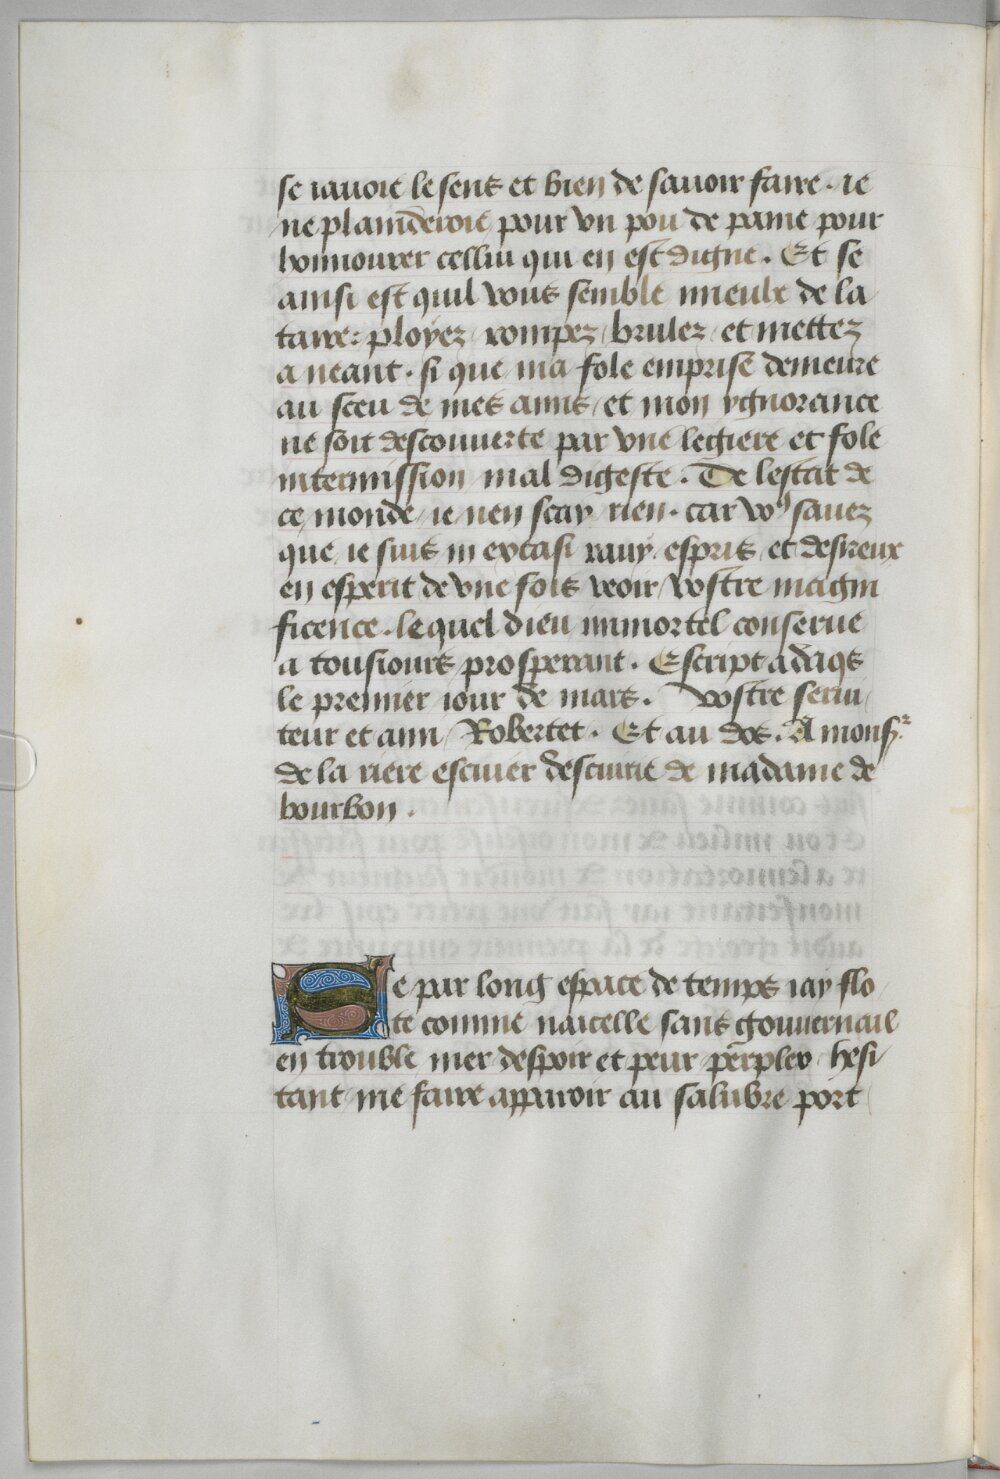 se iauoie le sens et bien de sauoir faire. ie
ne plaind̄eroie pour vn pou de paine pour
honnourer cellui qui en est digne. Et se
ainsi est quil vous semble mieulx de la
taire: ployez / rompez / brulez / et mettez
a neant. si que ma fole emprise demeure
au sceu de mes amis / et mon ygnorance
ne soit descouuerte par vne legiere et fole
intermission mal digeste. De lestat de
ce monde / ie nen scay rien. car voꝰ sauez
que ie suis in extasi rauy / espris et desireux
en esperit de vne fois veoir vostre magni
ficence. lequel dieu immortel conserue
a tousiours prosperant. Escript a
le premier iour de mars. Vostre serui
teur et ami / Robertet. Et au dos. A monsʳ.
de la riere escuier descuirie de madame de
bourbon.
Se par long espace de temps iay flo
te comme naicelle sans gouuernail
en trouble mer despoir et peur perplex / hesi
tant me faire apparoir au salubre port